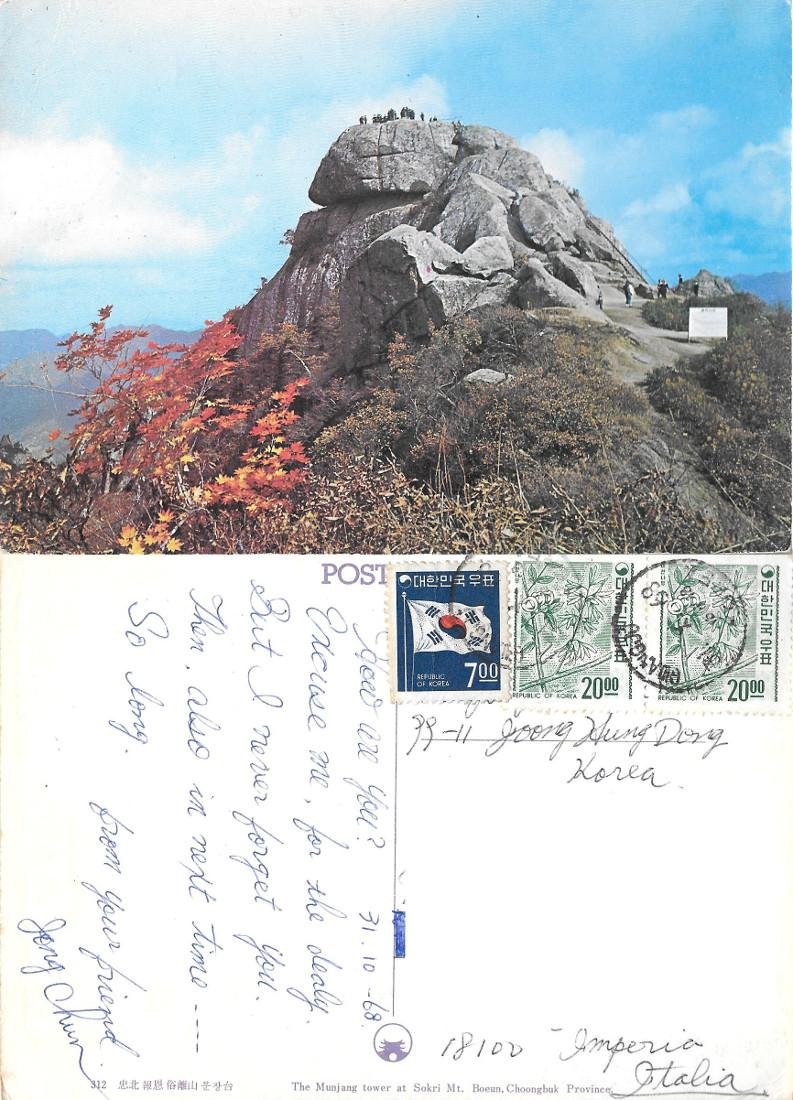 POST
대한민국우표
7.00
REPUBLIC
OF KOREA
대한민국우표
20.00
REPUBLIC OF KOREA
대한민국우표
20.00
REPUBLIC OF KOREA
How are you? 31.10-68.
Excuse me, for the dealy.
But I never forget you.
Then, also in next time ----
So long.
from your friend
Jong Chun
99-11 Joong Hung Dong
Korea.
18100 - Imperia
Italia
312 忠北 報恩 俗離山 문장台
The Munjang tower at Sokri Mt. Boeun, Choongbuk Province.